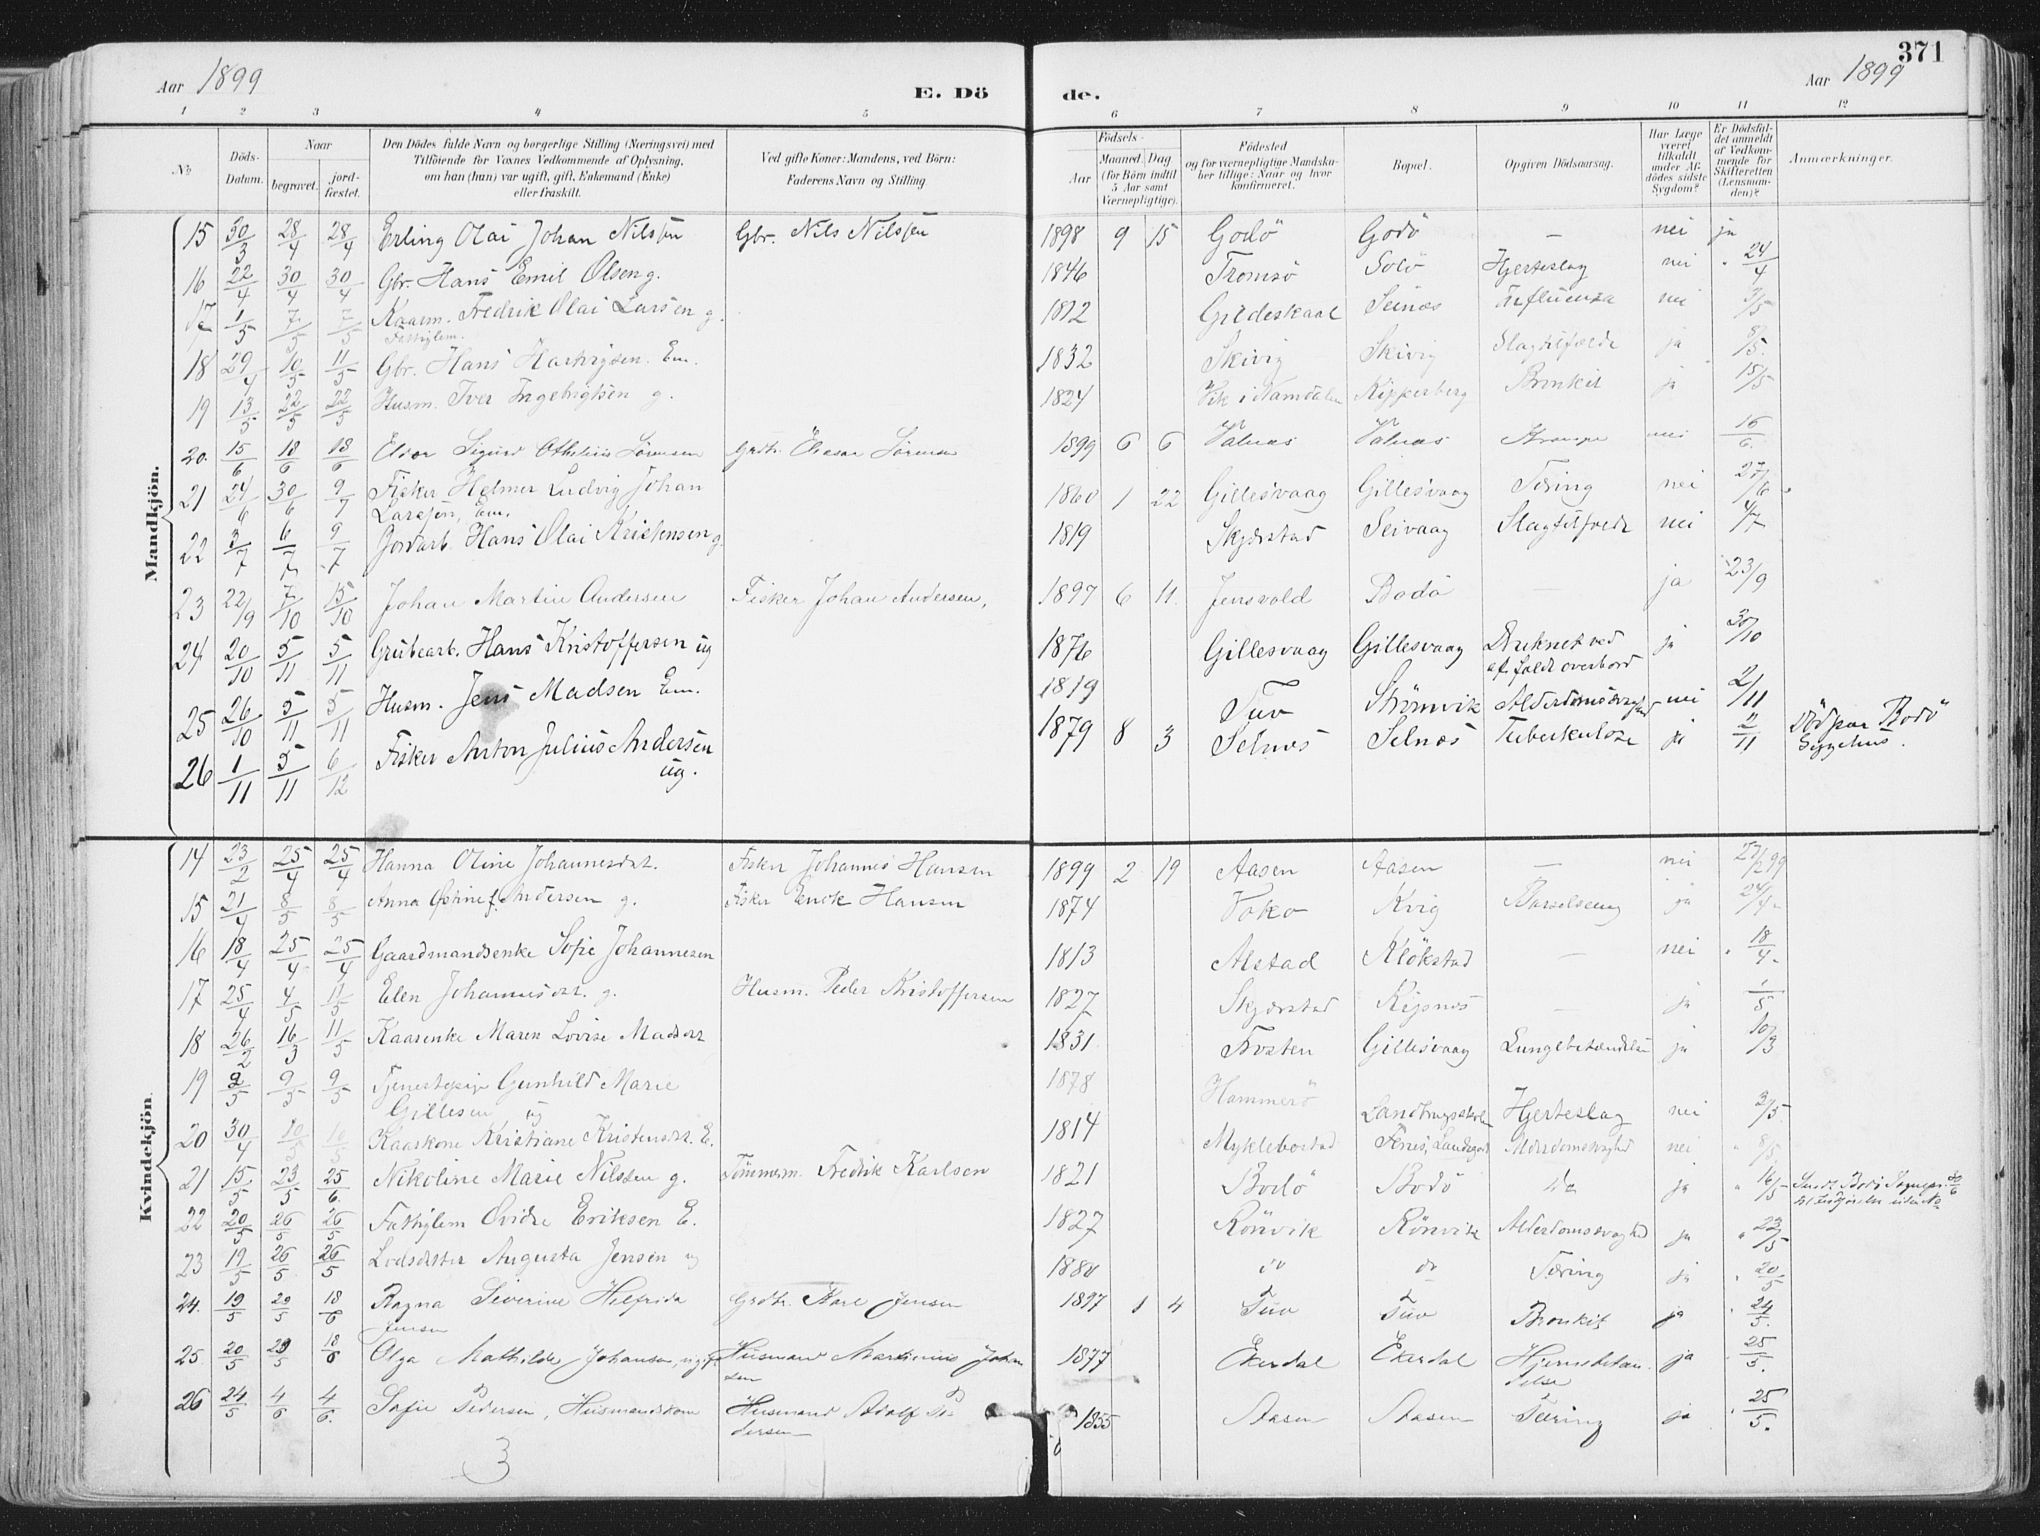 371
Aar 1899
E. Dö
de.
Aar 1899
1 2 3 4 5 6 7 8 9 10 11 12
No
Döds-Datum.
Naar
begravet.
jordfæstet.
Den Dödes fulde Navn og borgerlige Stilling (Næringsvei) med
Tilföiende for Voxnes Vedkommende af Oplysning,
om han (hun) var ugift, gift, Enkemand (Enke)
eller fraskilt.
Ved gifte Koner: Mandens, ved Börn:
Faderens Navn og Stilling
Födsels-
Aar
Maaned. Dag.
(for Börn indtil
5 Aar samt
Værnepligtige).
Födested
og for værnepligtige Mandskaber tillige: Naar og hvor
konfirmeret.
Bopæl.
Opgiven Dödsaarsag.
Har Læge
været
tilkaldt
under Afdödes sidste
Sygdom?
Er Dödsfaldet anmeldt
af Vedkommende for
Skifteretten
(Lensmanden)?
Anmærkninger.
Mandkjön.
15 30/3 28/4 28/4 Erling Olai Johan Nilsen Gbr. Nils Nilsen 1898 9 15 Godö Godö — nei ja
16 22/4 30/4 30/4 Gbr. Hans Emil Olsen g. 1846 Tromsö Solö Hjerteslag nei " 24/4
17 1/5 7/5 7/5 Kaarm. Fredrik Olai Larsen g. 1822 Gildeskaal Seines Influenza nei 3/5
Fattiglem.
18 29/4 10/5 11/5 Gbr. Hans Hartvigsen. Em. 1832 Skivig Skivig Slagtilfælde ja 8/5
19 13/5 22/5 22/5 Husm. Iver Ingebrigtsen g. 1824 Vik i Namdalen Kipperberg Bronkit ja 15/5
20. 15/6 18/6 18/6 Sigurd Othelius Sörensen Sörensen 1899 6 6 Valnæs Valnæs Krampe nei 16/6
21 24/6 30/6 9/7 Fisker Helmer Ludvig Johan 1860 1 22 Gillesvaag Gillesvaag Tæring nei 27/6
Larssen, Em.
22 3/7 6/7 9/7 Jordarb. Hans Olai Kristensen g. 1819 Skjærstad Seivaag Slagtilfælde nei 4/7
23 22/9 7/10 15/10 Johan Martin Andersen Fisker Johan Andersen, 1897 6 11 Jensvold Bodö — ja 23/9
24 20/10 5/11 5/11 Grubearb. Hans Kristoffersen ug 1876 Gillesvaag Gillesvaag Druknet ved ja 30/10
at falde overbord
25 26/10 5/11 5/11 Husm. Jens Madsen Em. 1819 Tuv Strömvik Alderdomssvaghed nei 2/11
26 1/11 5/11 6/12 Fisker Anton Julius Andersen 1879 8 3 Selnes Selnæs Tuberkulose ja 2/11 Död paa Bodö
ug. Sygehus.
Kvindekjön.
14 23/2 25/4 25/4 Hanna Oline Johannesdat. Fisker Johannes Hansen 1899 2 19 Aasen Aasen — nei 27/2 99
15 21/4 8/5 8/5 Anna Östine f. Andersen g. Fisker Enok Hansen 1874 Kvig Barselseng ja 24/4
16 18/4 25/4 25/4 Gaardmandsenke Sofie Johannesen 1813 Alstad Klökstad — nei " 18/4
17 25/4 4/5 11/5 Elen Johannesdat. g. Husm. Peder Kristoffersen 1827 Skjærstad — ja 1/5
18 26/2 16/3 11/5 Kaarenke Maren Lovise Madsdat 1831 Frosten Gillesvaag Lungebetændelse ja 10/3
19 2/5 9/5 9/5 Tjenestepige Gunhild Marie 1878 Hammerö Landbrugsskolen Hjerteslag nei 3/5
Gillesen ug
20 30/4 10/5 10/5 Kaarkone Kristiane Kristensdat. E. 1814 Myklebostad Fenes, Landegode Alderdomssvaghed nei " 8/5
21 15/5 23/5 25/6 Nikoline Marie Nilssen g. Tömmerm. Fredrik Karlsen 1821 Bodö Bodö do ja " 16/5
22 20/5 26/5 26/5 Fattiglem Ovidie Eriksen E. 1827 Rönvik Rönvik Alderdomssvaghed ja " 23/5
23 19/5 26/5 26/5 Lodsdatter Augusta Jensen ug 1880 do do Tæring ja " 20/5
24. 19/5 29/5 18/6 Ragna Siverine Helfrida Grdbr. Kare Jensen 1897 1 4 Tuv Tuv Bronkit ja " 24/5
Jensen
25 20/5 29/5 18/6 Olga Mathilde Johansen, ugift Husmand Martinius Johan 1877 Ekerdal Ekerdal Hjernebetæn ja 25/5.
sen delse
26 24/5 4/6 4/6. Sofie Pedersen, Husmandskone Husmand Adolf Pe 1855 Aasen Aasen Tæring ja " 25/5.
dersen
3